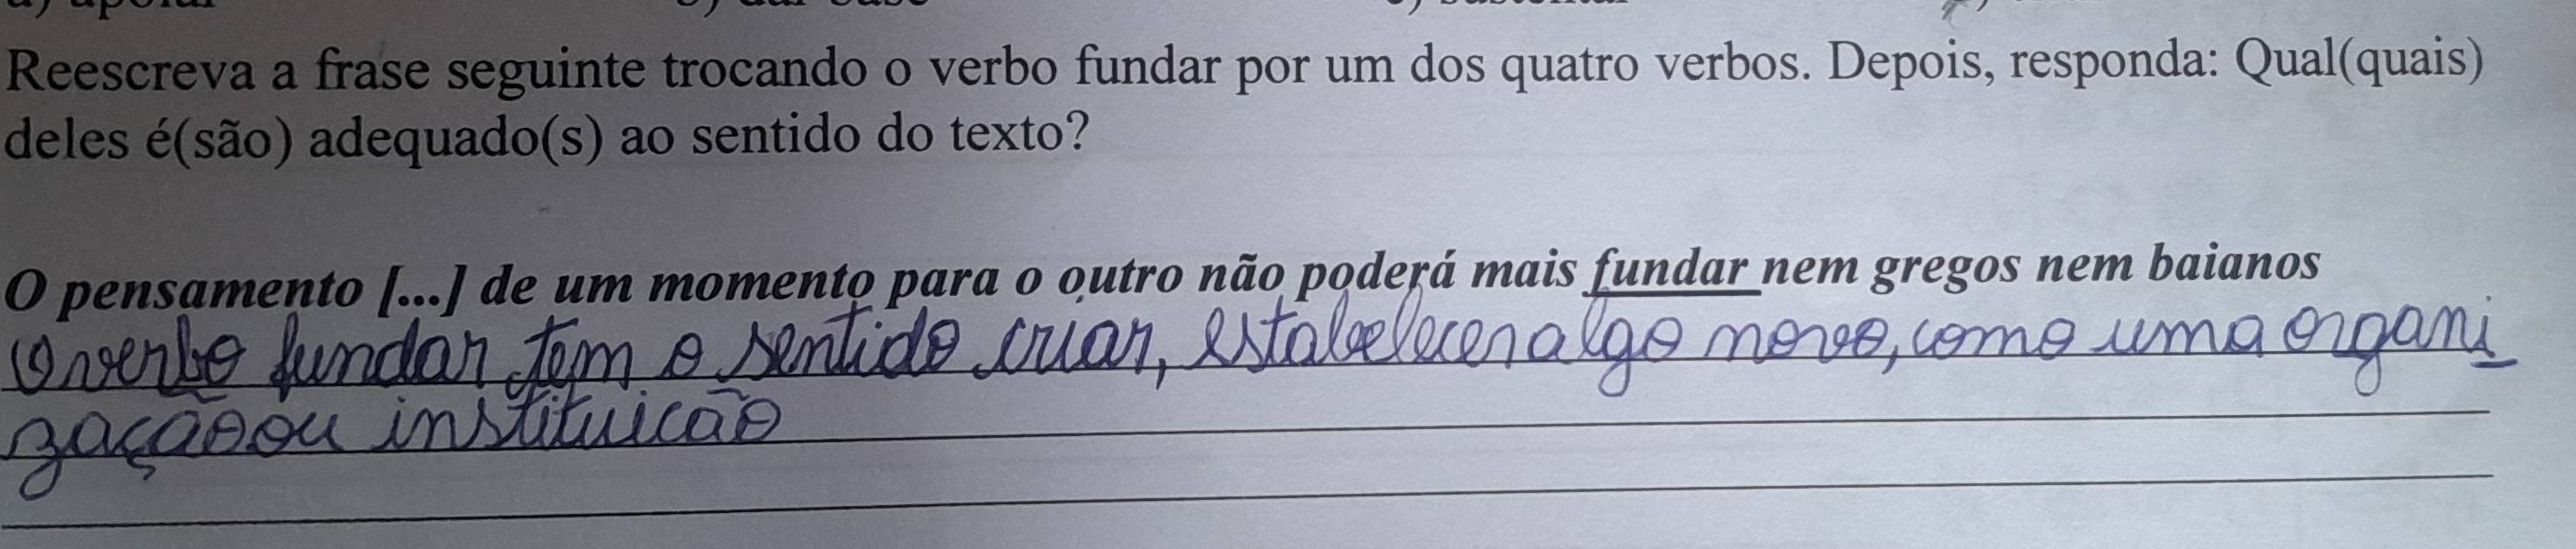 a) apoiar b) dar base c) sustentar
Reescreva a frase seguinte trocando o verbo fundar por um dos quatro verbos. Depois, responda: Qual(quais)
deles é(são) adequado(s) ao sentido do texto?
O pensamento [...] de um momento para o outro não poderá mais fundar nem gregos nem baianos
O verbo fundar tem o sentido criar, estabelecer algo novo, como uma organi
zação ou instituicão